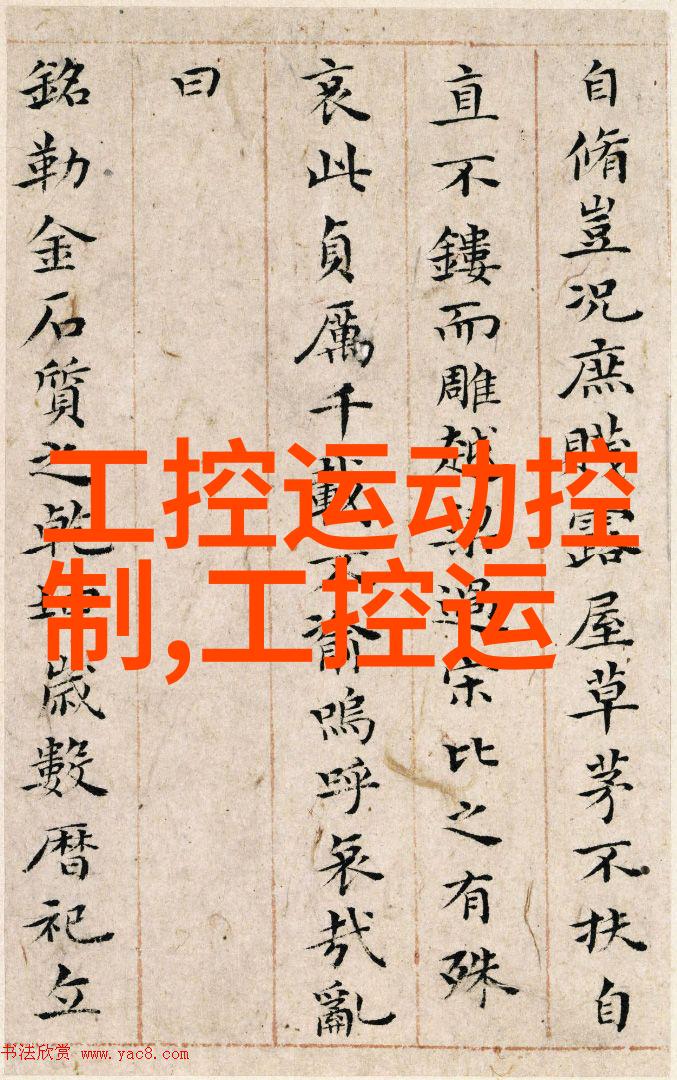 自脩豈況庶賤露屋草茅不扶自
直不鏤而雕越梁過宋比之有殊
哀此貞厲千載不渝嗚呼哀哉亂
曰
銘勒金石質之乾坤歲數暦祀立
工控运动控
制,工控运
书法欣赏 www.yac8.com